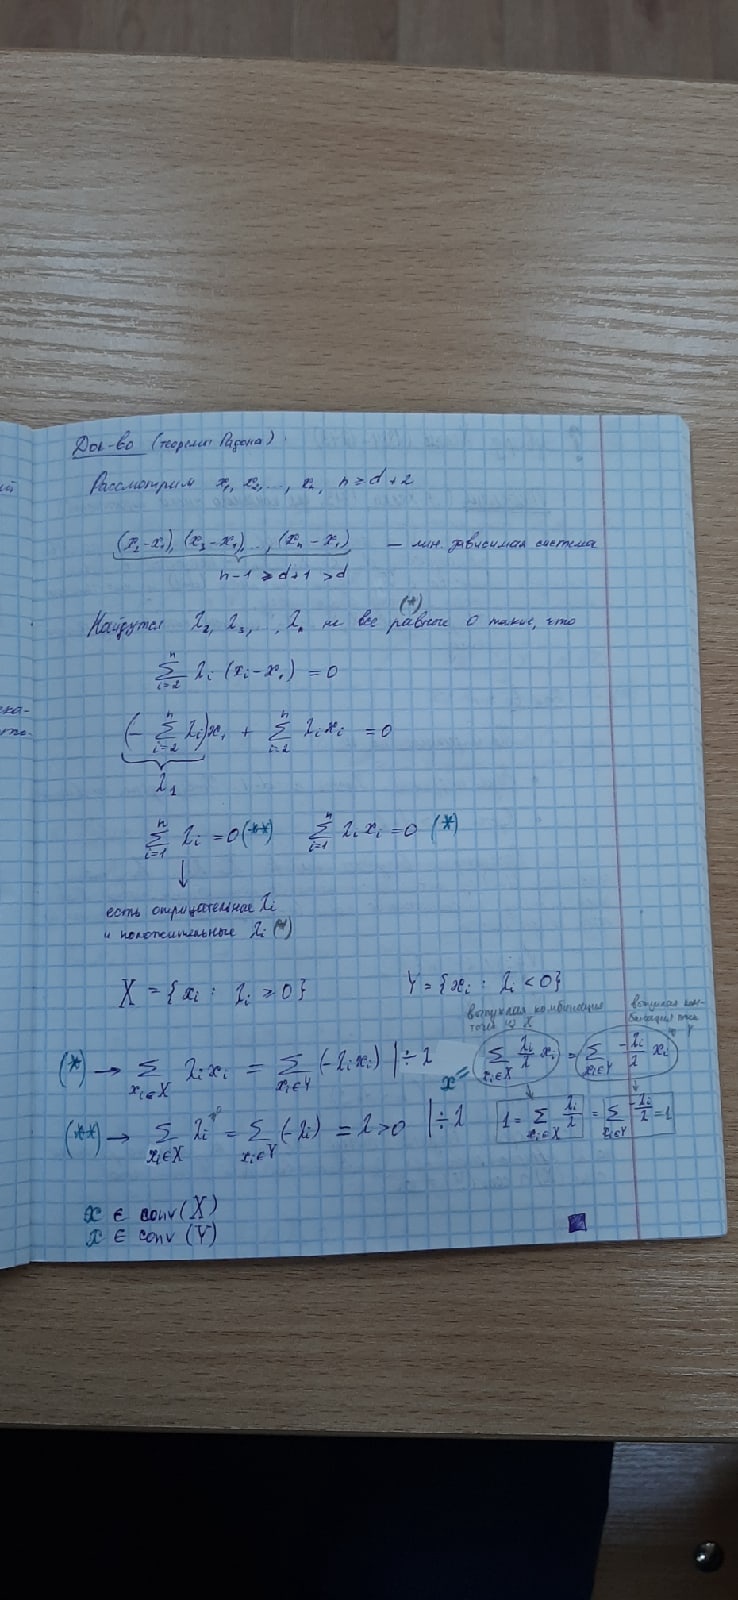 Док-во (теоремы Радона).
Рассмотрим x₁, x₂, ..., xₙ, n ≥ d+2
(x₂-x₁), (x₃-x₁), ..., (xₙ-x₁) — лин. зависимая система
n-1 ≥ d+1 > d
(*)
Найдутся λ₂, λ₃, ..., λₙ не все равные 0 такие, что
∑ᵢ₌₂ⁿ λᵢ (xᵢ-x₁) = 0
(-∑ᵢ₌₂ⁿ λᵢ)x₁ + ∑ᵢ₌₂ⁿ λᵢxᵢ = 0
λ₁
∑ᵢ₌₁ⁿ λᵢ = 0 (**) ∑ᵢ₌₁ⁿ λᵢxᵢ = 0 (*)
↓
есть отрицательные λᵢ
и положительные λᵢ (*)
X = {xᵢ : λᵢ ≥ 0} Y = {xᵢ : λᵢ < 0}
выпуклая комбинация
точек из X
выпуклая ком-
бинация точек
Y
(*) → ∑_{xᵢ∈X} λᵢxᵢ = ∑_{xᵢ∈Y} (-λᵢxᵢ) | ÷ λ x = ∑_{xᵢ∈X} λᵢ/λ xᵢ = ∑_{xᵢ∈Y} -λᵢ/λ xᵢ
(**) → ∑_{xᵢ∈X} λᵢ = ∑_{xᵢ∈Y} (-λᵢ) = λ > 0 | ÷ λ 1 = ∑_{xᵢ∈X} λᵢ/λ = ∑_{xᵢ∈Y} -λᵢ/λ = 1
x ∈ conv(X)
x ∈ conv(Y)